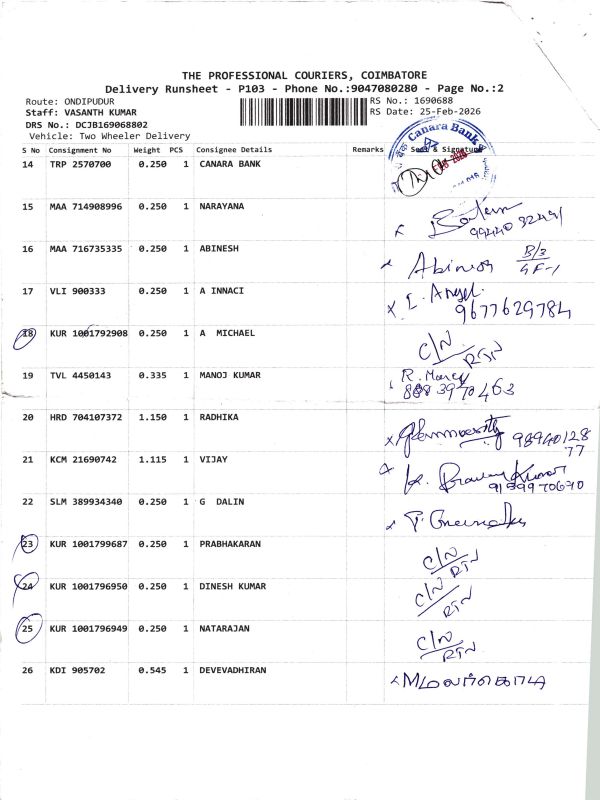 THE PROFESSIONAL COURIERS, COIMBATORE
Delivery Runsheet - P103 - Phone No.:9047080280 - Page No.:2
Route: ONDIPUDUR RS No.: 1690688
Staff: VASANTH KUMAR RS Date: 25-Feb-2026
DRS No.: DCJB169068802
Vehicle: Two Wheeler Delivery
S No Consignment No Weight PCS Consignee Details Remarks Seal & Signature
Canara Bank
14 TRP 2570700 0.250 1 CANARA BANK
15 MAA 714908996 0.250 1 NARAYANA
16 MAA 716735335 0.250 1 ABINESH Abinesh B/3
GF-1
17 VLI 900333 0.250 1 A INNACI I. Angel
9677629784
18 KUR 1001792908 0.250 1 A MICHAEL C/N
RTN
19 TVL 4450143 0.335 1 MANOJ KUMAR R. Mary
20 HRD 704107372 1.150 1 RADHIKA 98940128
77
21 KCM 21690742 1.115 1 VIJAY
22 SLM 389934340 0.250 1 G DALIN
23 KUR 1001799687 0.250 1 PRABHAKARAN C/N
RTN
24 KUR 1001796950 0.250 1 DINESH KUMAR C/N
RTN
25 KUR 1001796949 0.250 1 NATARAJAN C/N
RTN
26 KDI 905702 0.545 1 DEVEVADHIRAN